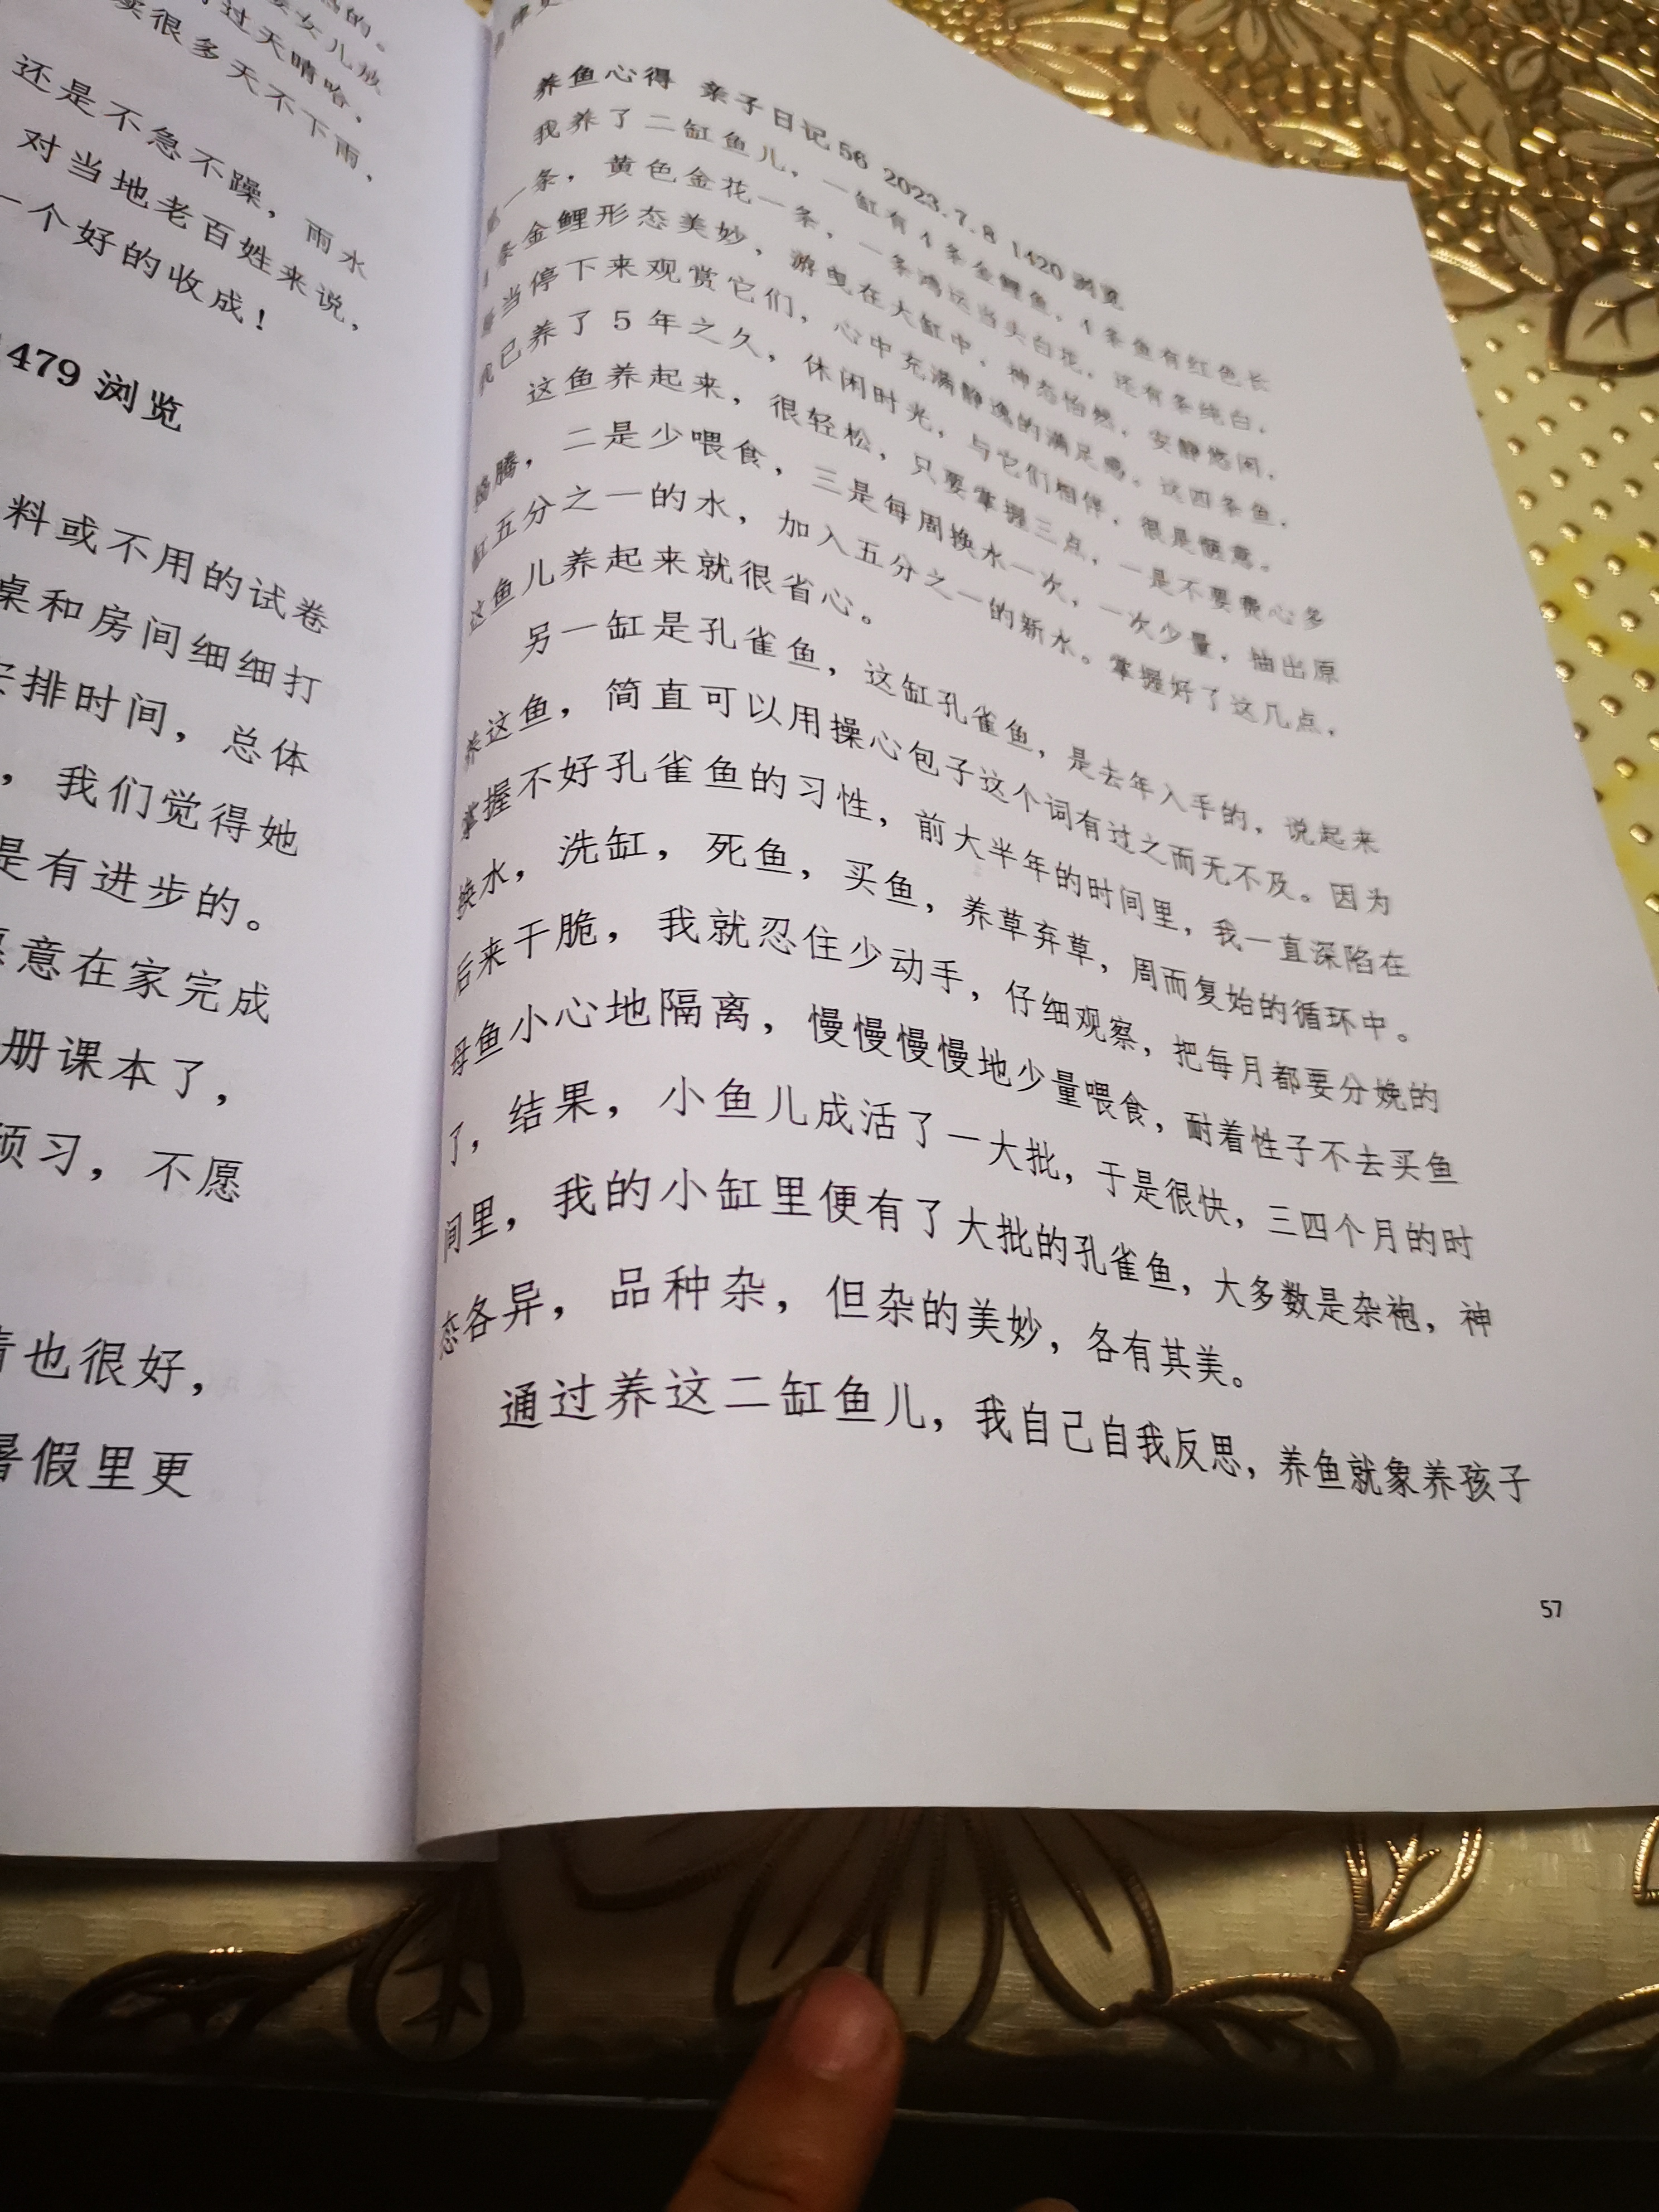 过天晴哈。
很多天不下雨，
还是不急不躁，雨水
对当地老百姓来说，
一个好的收成！
1479 浏览
料或不用的试卷
桌和房间细细打
安排时间，总体
，我们觉得她
是有进步的。
愿意在家完成
册课本了，
预习，不愿
也很好，
暑假里更
养鱼心得 亲子日记56 2023.7.8 1420 浏览
我养了二缸鱼儿，一缸有4条金鲤鱼，4条鱼有红色长
一条，黄色金花一条，一条鸿运当头白花，还有条纯白，
条金鲤形态美妙，游曳在大缸中，神态怡然，安静悠闲，
当停下来观赏它们，心中充满静逸的满足感。这四条鱼，
我已养了5年之久，休闲时光，与它们相伴，很是惬意。
这鱼养起来，很轻松，只要掌握三点，一是不要费心多
腾，二是少喂食，三是每周换水一次，一次少量，抽出原
缸五分之一的水，加入五分之一的新水。掌握好了这几点，
这鱼儿养起来就很省心。
另一缸是孔雀鱼，这缸孔雀鱼，是去年入手的，说起来
养这鱼，简直可以用操心包子这个词有过之而无不及。因为
掌握不好孔雀鱼的习性，前大半年的时间里，我一直深陷在
换水，洗缸，死鱼，买鱼，养草弃草，周而复始的循环中。
后来干脆，我就忍住少动手，仔细观察，把每月都要分娩的
母鱼小心地隔离，慢慢慢慢地少量喂食，耐着性子不去买鱼
了，结果，小鱼儿成活了一大批，于是很快，三四个月的时
间里，我的小缸里便有了大批的孔雀鱼，大多数是杂袍，神
态各异，品种杂，但杂的美妙，各有其美。
通过养这二缸鱼儿，我自己自我反思，养鱼就象养孩子
57